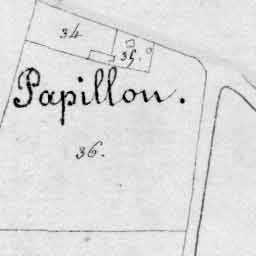 34
35.
Papillon.
36.